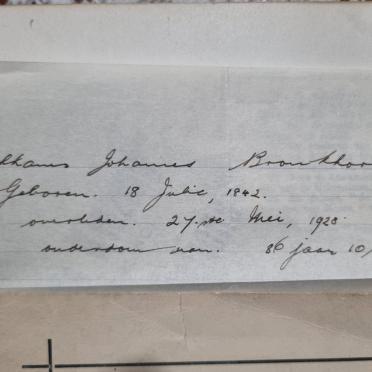 Johannes Bronkhor
Geboren. 18 Julie, 1842.
overleden. 27.ste Mei, 1928.
ouderdom van. 86 jaar 10